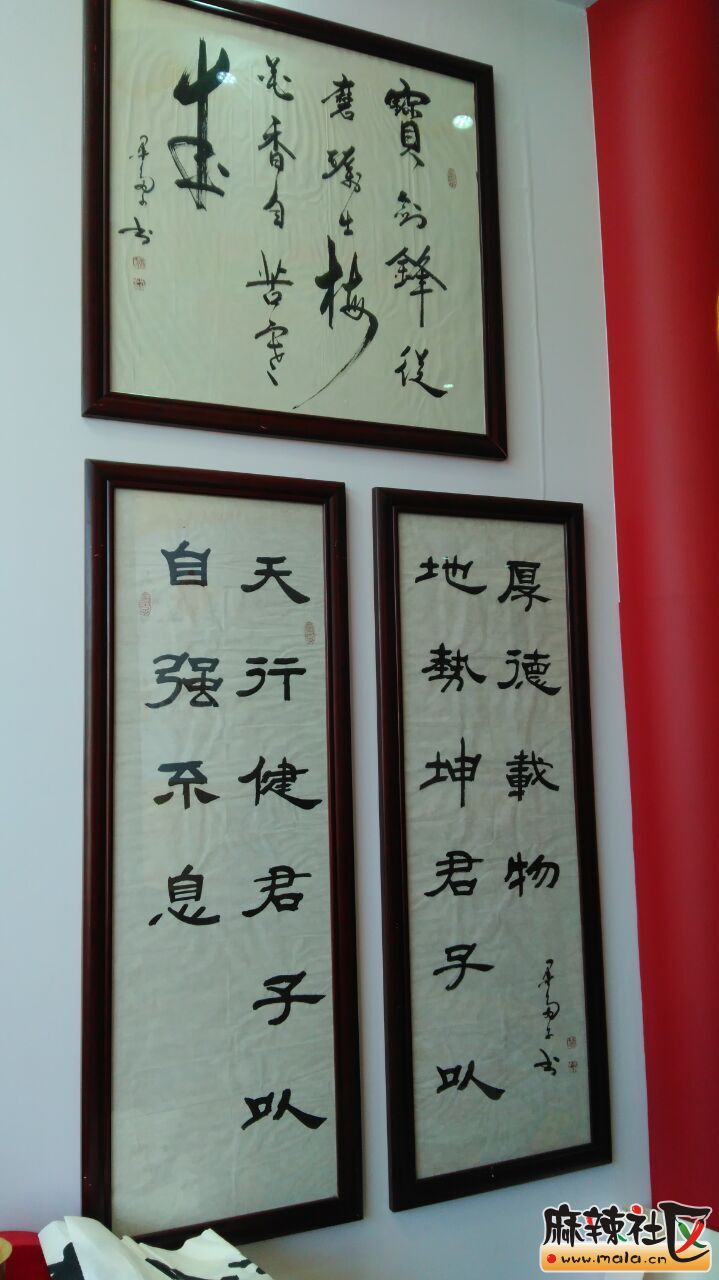 寶劍鋒從
磨礪出梅
花香自苦寒
来
天行健君子以
自强不息
地勢坤君子以
厚德載物
麻辣社区
www.mala.cn